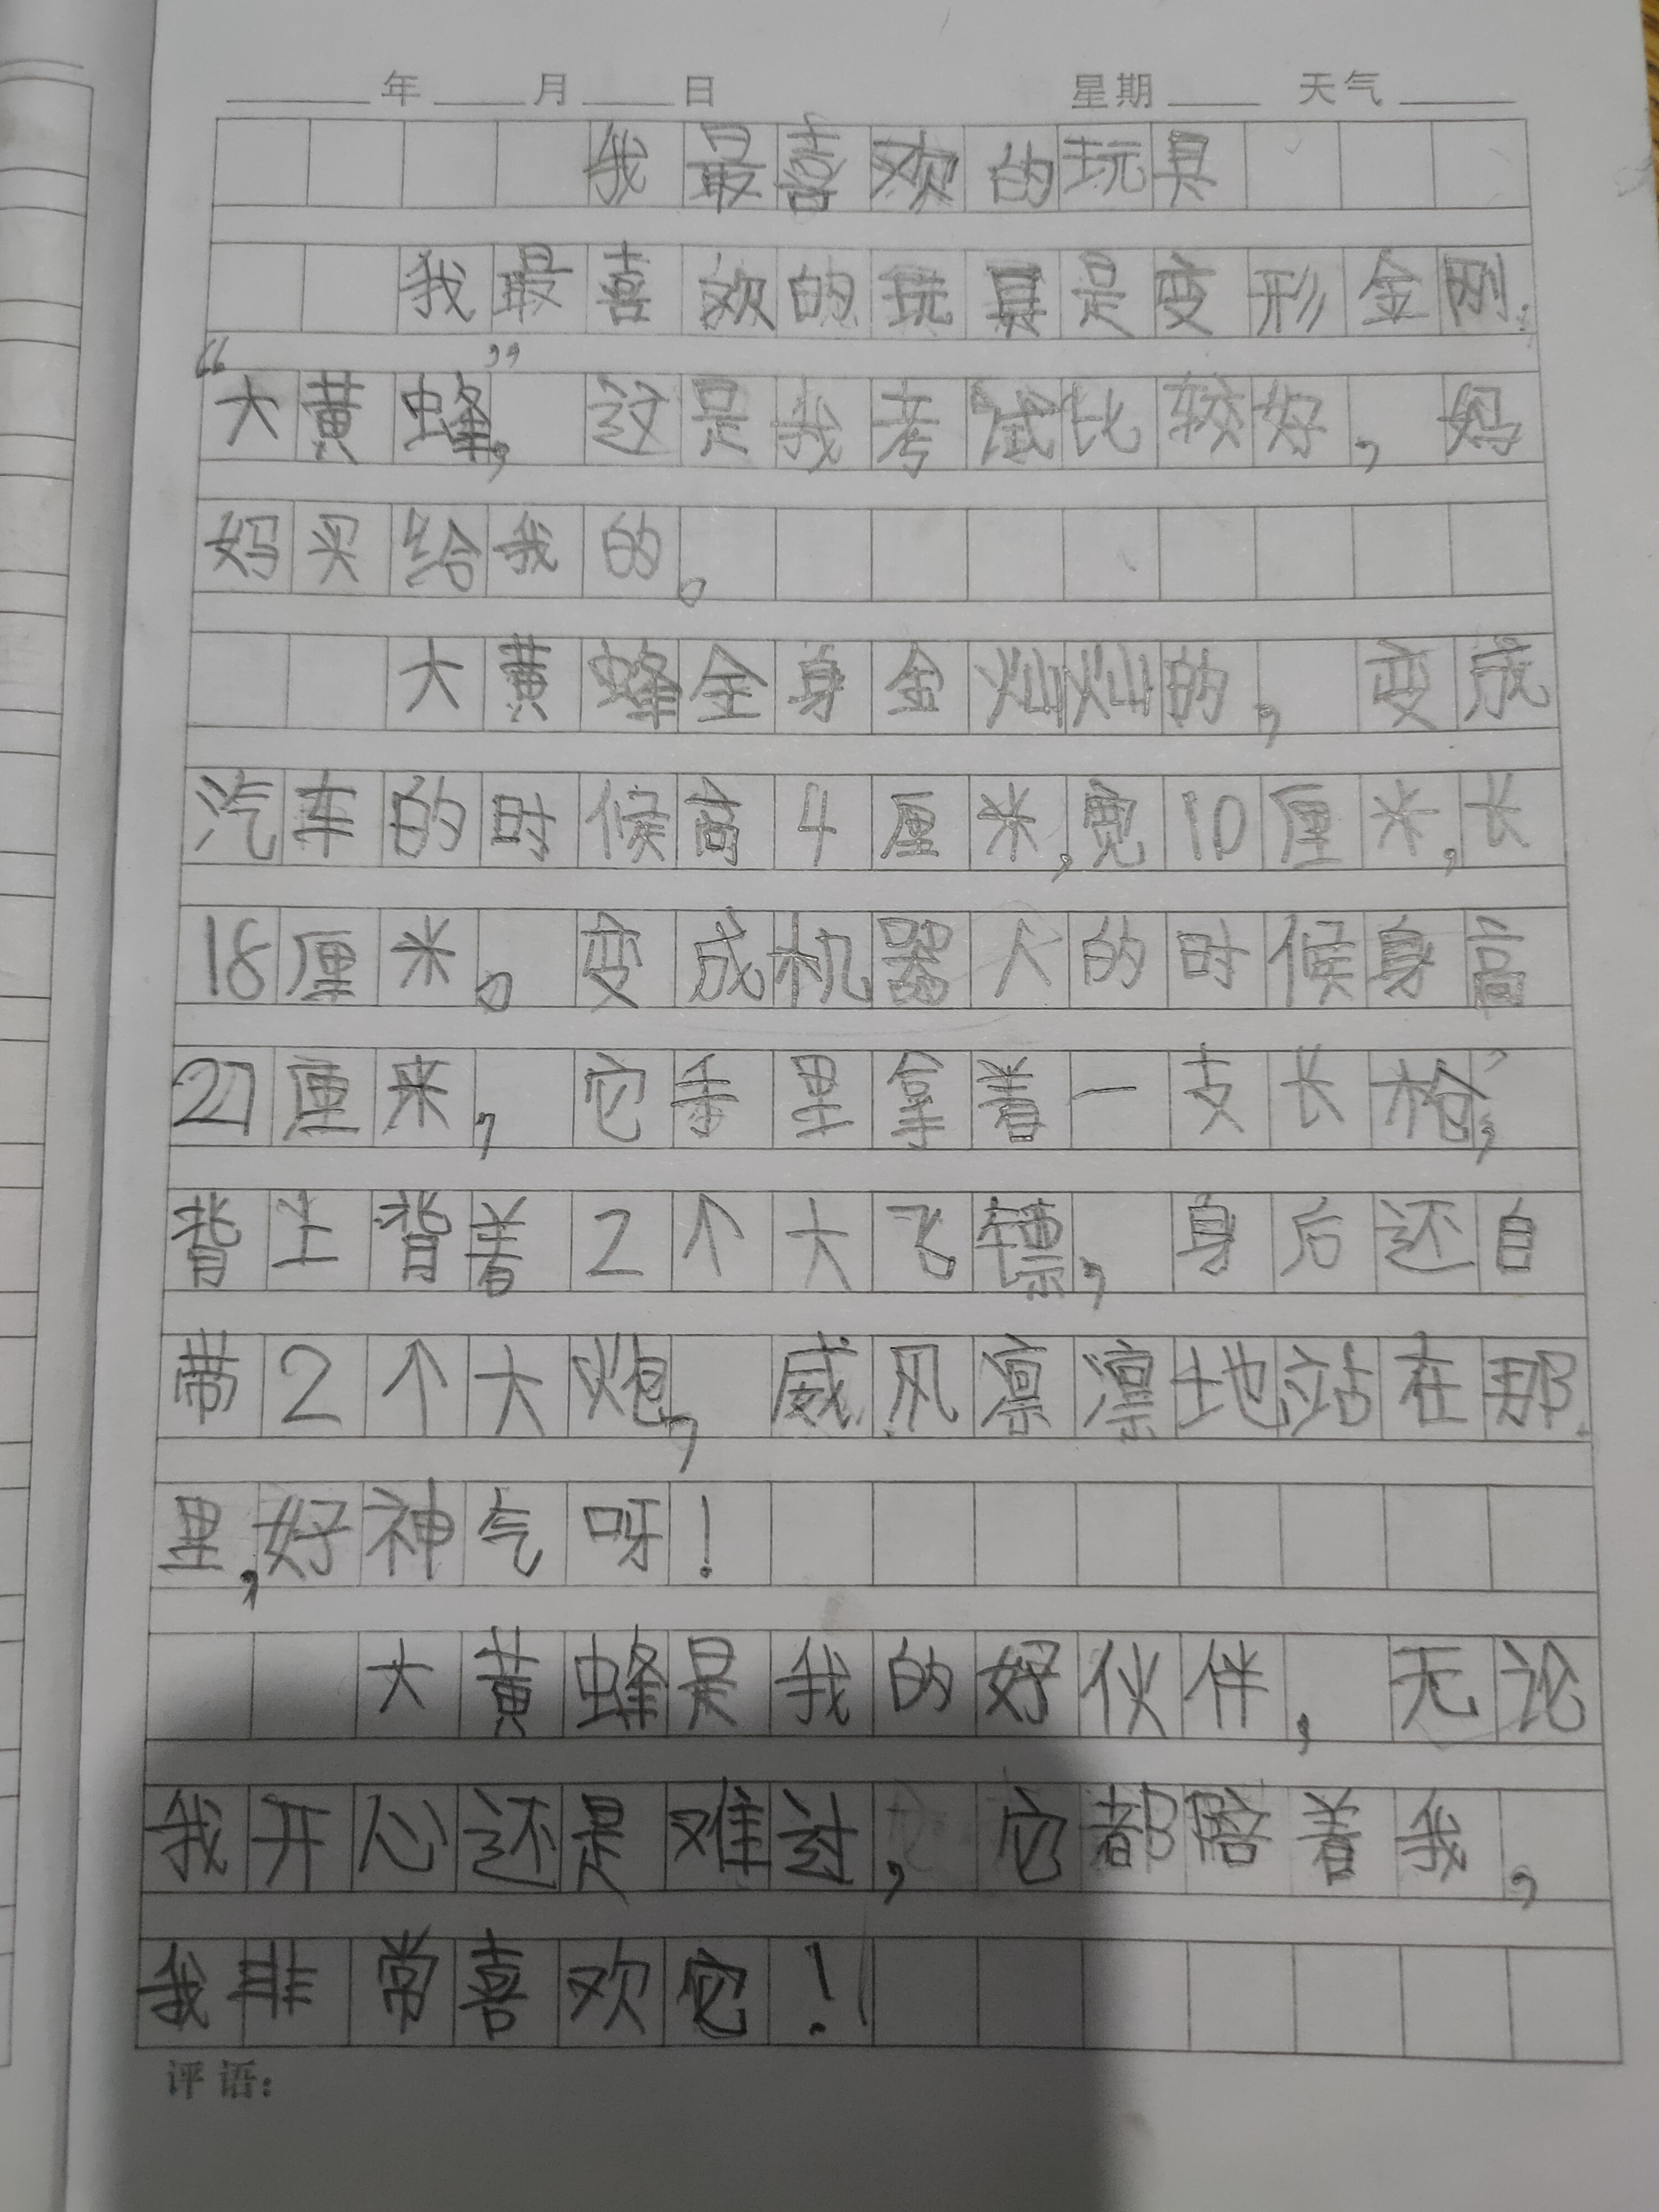 年 月 日 星期 天气
我最喜欢的玩具
我最喜欢的玩具是变形金刚:
“大黄蜂”,这是我考试比较好,妈
妈买给我的。
大黄蜂全身金灿灿的,变成
汽车的时候高4厘米,宽10厘米,长
18厘米。变成机器人的时候身高
27厘米,它手里拿着一支长枪,
背上背着2个大飞镖,身后还自
带2个大炮,威风凛凛地站在那
里,好神气呀!
大黄蜂是我的好伙伴,无论
我开心还是难过,它都陪着我,
我非常喜欢它!
评语: